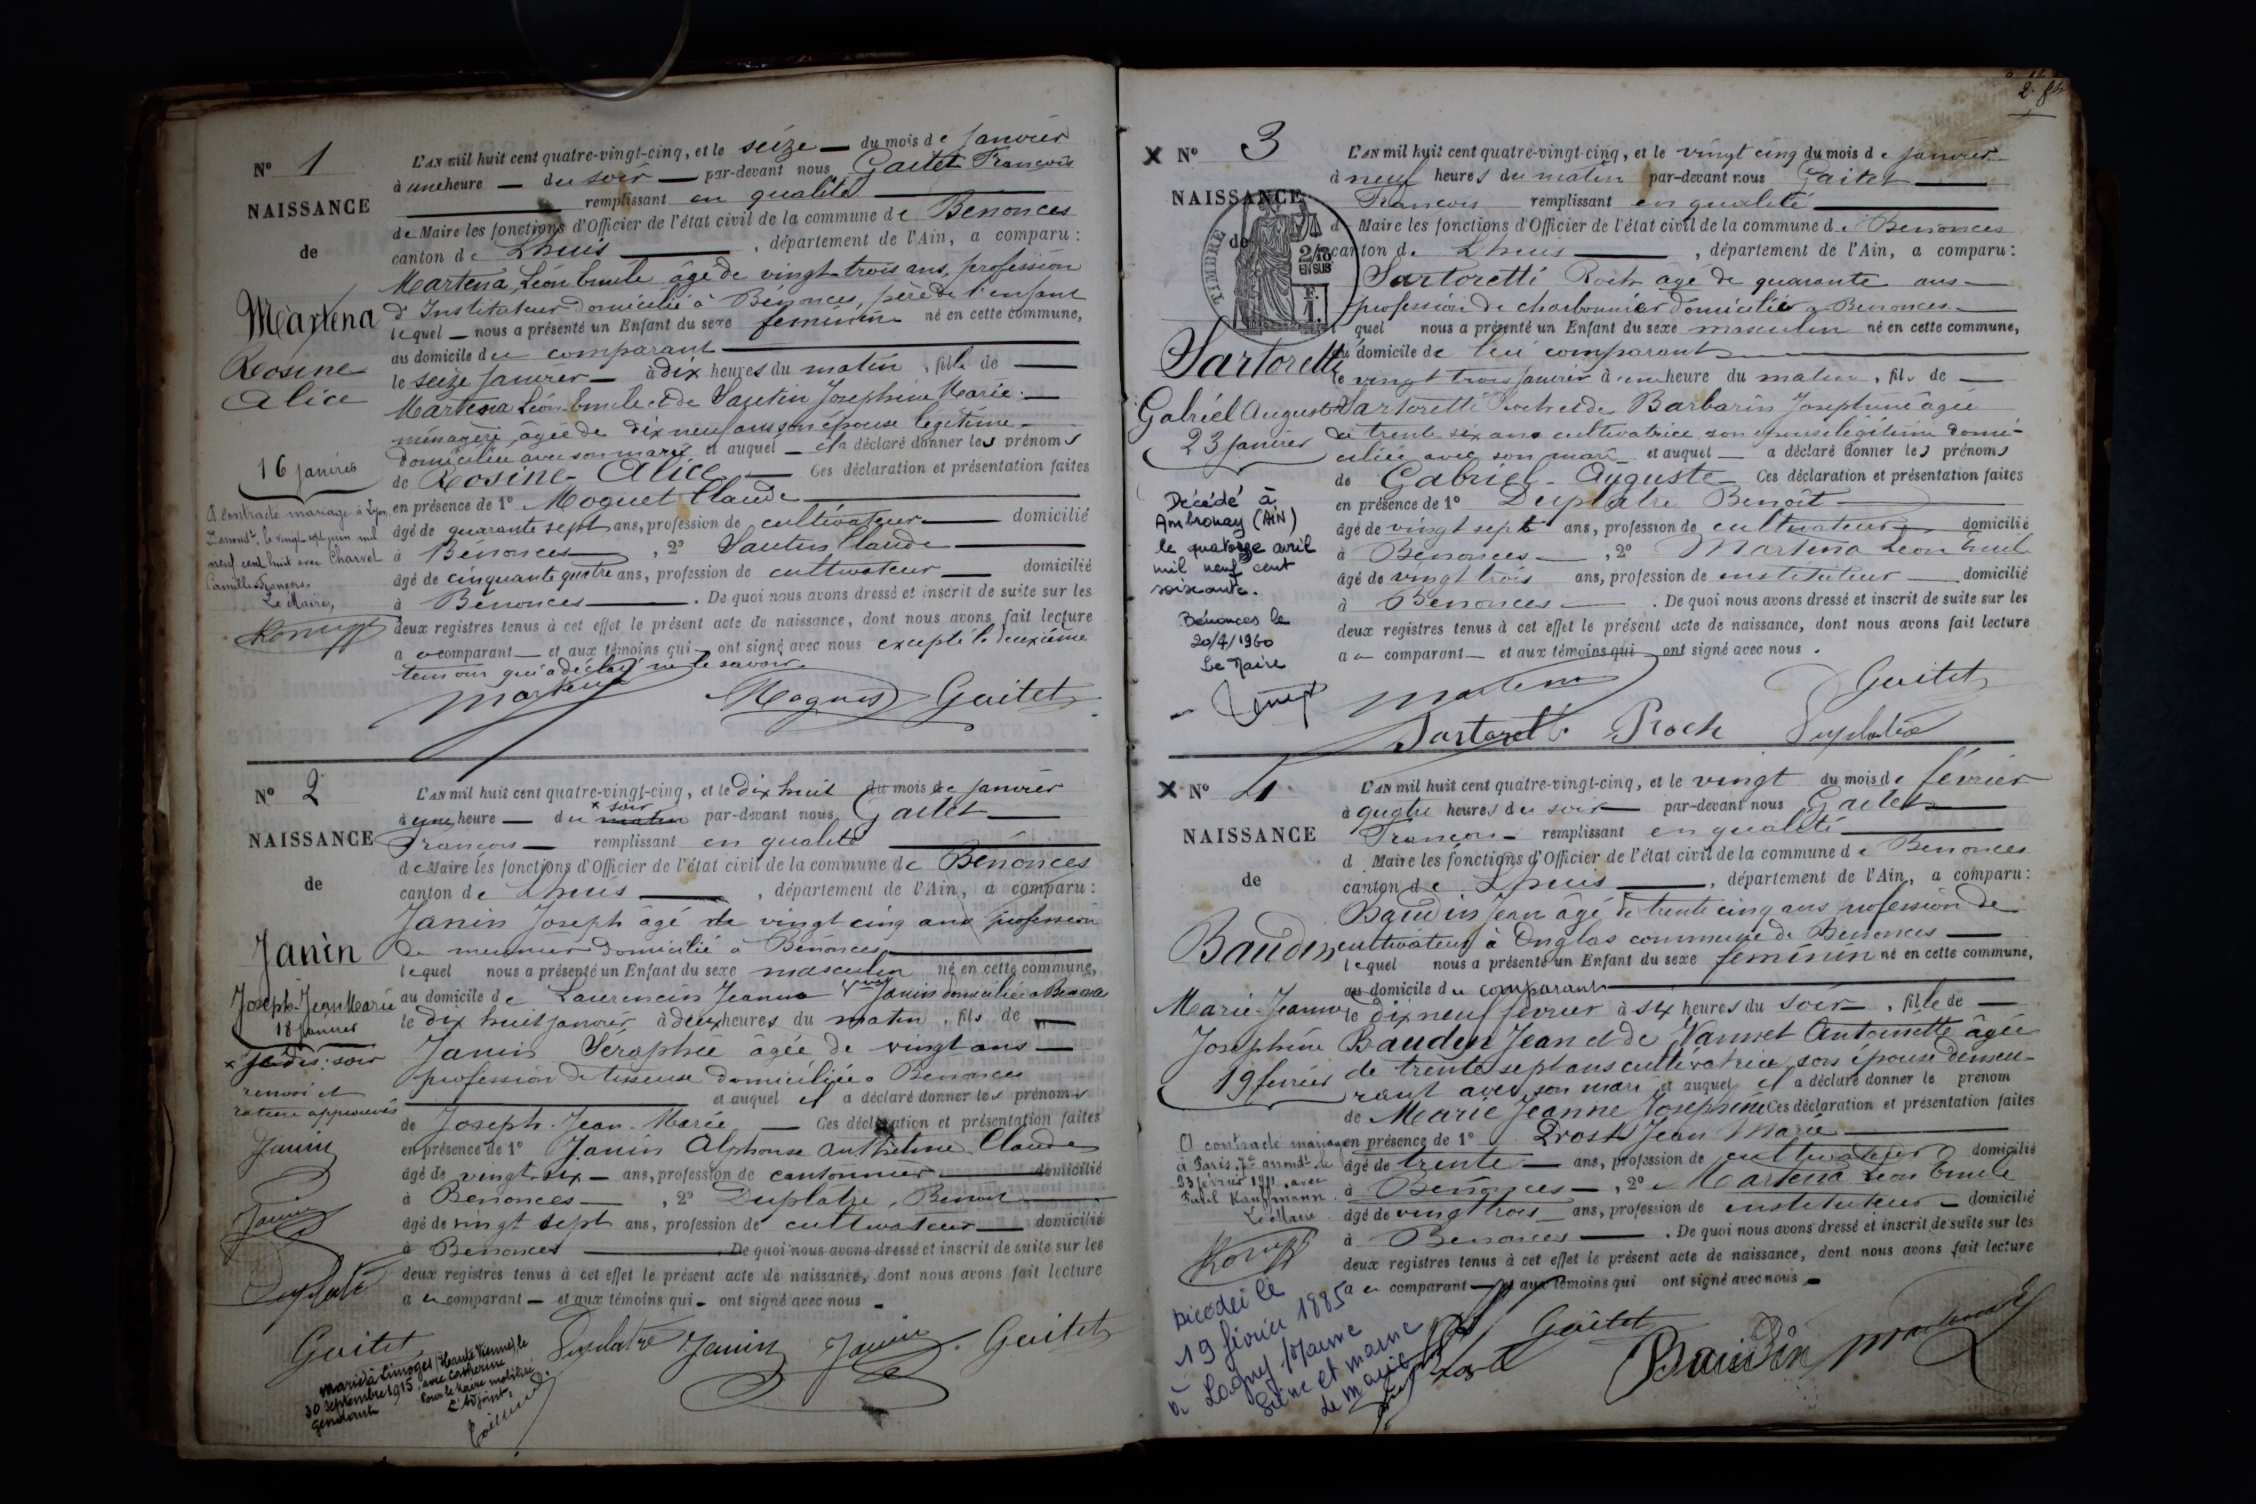 Nº 1
NAISSANCE
de
Martena
Rosine
Alice
16 janvier
A contracté mariage à Lyon
le vingt sept juin mil
neuf cent huit avec Charvet
Camille François
Le Maire,
L'AN mil huit cent quatre-vingt-cinq, et le seize du mois de janvier
à une heure du soir par-devant nous Gaitet François
remplissant en qualité
de Maire les fonctions d'Officier de l'état civil de la commune de Benonces
canton de Lhuis, département de l'Ain, a comparu :
Martena Léon Emile âgé de vingt trois ans, profession
d'Instituteur domicilié à Bénonces, père de l'enfant
lequel nous a présenté un Enfant du sexe feminin né en cette commune,
au domicile du comparant
le seize janvier à dix heures du matin, fille de
Martena Léon Emile et de Sautin Josephine Marie
ménagère, âgée de dix neuf ans son épouse légitime
domiciliée avec son mari et auquel il a déclaré donner les prénoms
de Rosine-Alice Ces déclaration et présentation faites
en présence de 1º Moquet Claude
âgé de quarante sept ans, profession de cultivateur domicilié
à Benonces, 2º Sautin Claude
âgé de cinquante quatre ans, profession de cultivateur domicilié
à Bénonces. De quoi nous avons dressé et inscrit de suite sur les
deux registres tenus à cet effet le présent acte de naissance, dont nous avons fait lecture
a comparant et aux témoins qui ont signé avec nous excepté le deuxième
temoin qui a déclaré ne le savoir.
Martena Moquet Gaitet
Nº 2
NAISSANCE
de
Janin
Joseph-Jean Marie
18 janvier
x je dis : soir
renvoi et
rature approuvés
Janin
Janin
Duplatre
Gaitet
Marié à Limoges (Haute Vienne) le
30 septembre 1915, avec Catherine
Gendarme
Pour le Maire mobilisé
L'Adjoint,
L'AN mil huit cent quatre-vingt-cinq, et le dix huit du mois de janvier
x soir
à une heure du matin par-devant nous Gaitet
François remplissant en qualité
de Maire les fonctions d'Officier de l'état civil de la commune de Bénonces
canton de Lhuis, département de l'Ain, a comparu :
Janin Joseph âgé de vingt cinq ans profession
de meunier domicilié à Bénonces
lequel nous a présenté un Enfant du sexe masculin né en cette commune,
au domicile de Laurencin Jeanne Vve Janin domiciliée à Benonces
le dix huit janvier, à deux heures du matin, fils de
Janin Seraphie âgée de vingt ans
profession de tisseuse domiciliée à Benonces
et auquel il a déclaré donner les prénoms
de Joseph-Jean-Marie Ces déclaration et présentation faites
en présence de 1º Janin Alphonse Anthelme Claude
âgé de vingt six ans, profession de cantonnier domicilié
à Benonces, 2º Duplâtre Benoit
âgé de vingt sept ans, profession de cultivateur domicilié
à Benonces. De quoi nous avons dressé et inscrit de suite sur les
deux registres tenus à cet effet le présent acte de naissance, dont nous avons fait lecture
a u comparant et aux témoins qui ont signé avec nous
Duplatre Janin Janin Gaitet
Nº 3
NAISSANCE
de
TIMBRE
2/10
EN SUS
Sartoretti
Gabriel Auguste
23 Janvier
Décédé à
Ambronay (AIN)
le quatorze avril
mil neuf cent
soixante.
Bénonces le
20/4/1960
Le Maire
L'AN mil huit cent quatre-vingt-cinq, et le vingt cinq du mois de janvier
à neuf heures du matin par-devant nous Gaitet
François remplissant en qualité
d Maire les fonctions d'Officier de l'état civil de la commune de Benonces
canton de Lhuis, département de l'Ain, a comparu :
Sartoretti Roch âgé de quarante ans
profession de charbonnier domicilié à Benonces
quel nous a présenté un Enfant du sexe masculin né en cette commune,
au domicile de lui comparant
le vingt trois janvier à une heure du matin, fils de
Sartoretti Roch et de Barbarin Josephine âgée
de trente six ans cultivatrice son épouse légitime domi-
ciliée avec son mari et auquel a déclaré donner les prénoms
de Gabriel-Auguste Ces déclaration et présentation faites
en présence de 1º Duplatre Benoît
âgé de vingt sept ans, profession de cultivateur domicilié
à Bénonces, 2º Martena Leon Emile
âgé de vingt trois ans, profession de instituteur domicilié
à Benonces. De quoi nous avons dressé et inscrit de suite sur les
deux registres tenus à cet effet le présent acte de naissance, dont nous avons fait lecture
a u comparant et aux témoins qui ont signé avec nous.
Martena Gaitet
Sartoretti Roch Duplatre
Nº 4
NAISSANCE
de
Baudin
Marie-Jeanne
Joséphine
19 fevrier
A contracté mariage
à Paris 7e arrondt le
23 février 1911, avec
Kauffmann
Le Maire
Décédée le
19 février 1985
à Lagny s/Marne
Seine et Marne
L'AN mil huit cent quatre-vingt-cinq, et le vingt du mois de février
à quatre heures du soir par-devant nous Gaitet
François remplissant en qualité
d Maire les fonctions d'Officier de l'état civil de la commune de Benonces
canton de Lhuis, département de l'Ain, a comparu :
Baudin Jean âgé de trente cinq ans profession de
cultivateur à Onglas commune de Benonces
lequel nous a présenté un Enfant du sexe feminin né en cette commune,
au domicile du comparant
le dix neuf fevrier à six heures du soir, fille de
Baudin Jean et de Vannet Antoinette âgée
de trente sept ans cultivatrice, son épouse demeu-
rant avec son mari et auquel il a déclaré donner le prénom
de Marie Jeanne Josephine Ces déclaration et présentation faites
en présence de 1º Drost Jean Marie
âgé de trente ans, profession de cultivateur domicilié
à Benonces, 2º Martena Leon Emile
âgé de vingt trois ans, profession de instituteur domicilié
à Benonces. De quoi nous avons dressé et inscrit de suite sur les
deux registres tenus à cet effet le présent acte de naissance, dont nous avons fait lecture
a u comparant et aux témoins qui ont signé avec nous
Gaitet
Baudin Martena